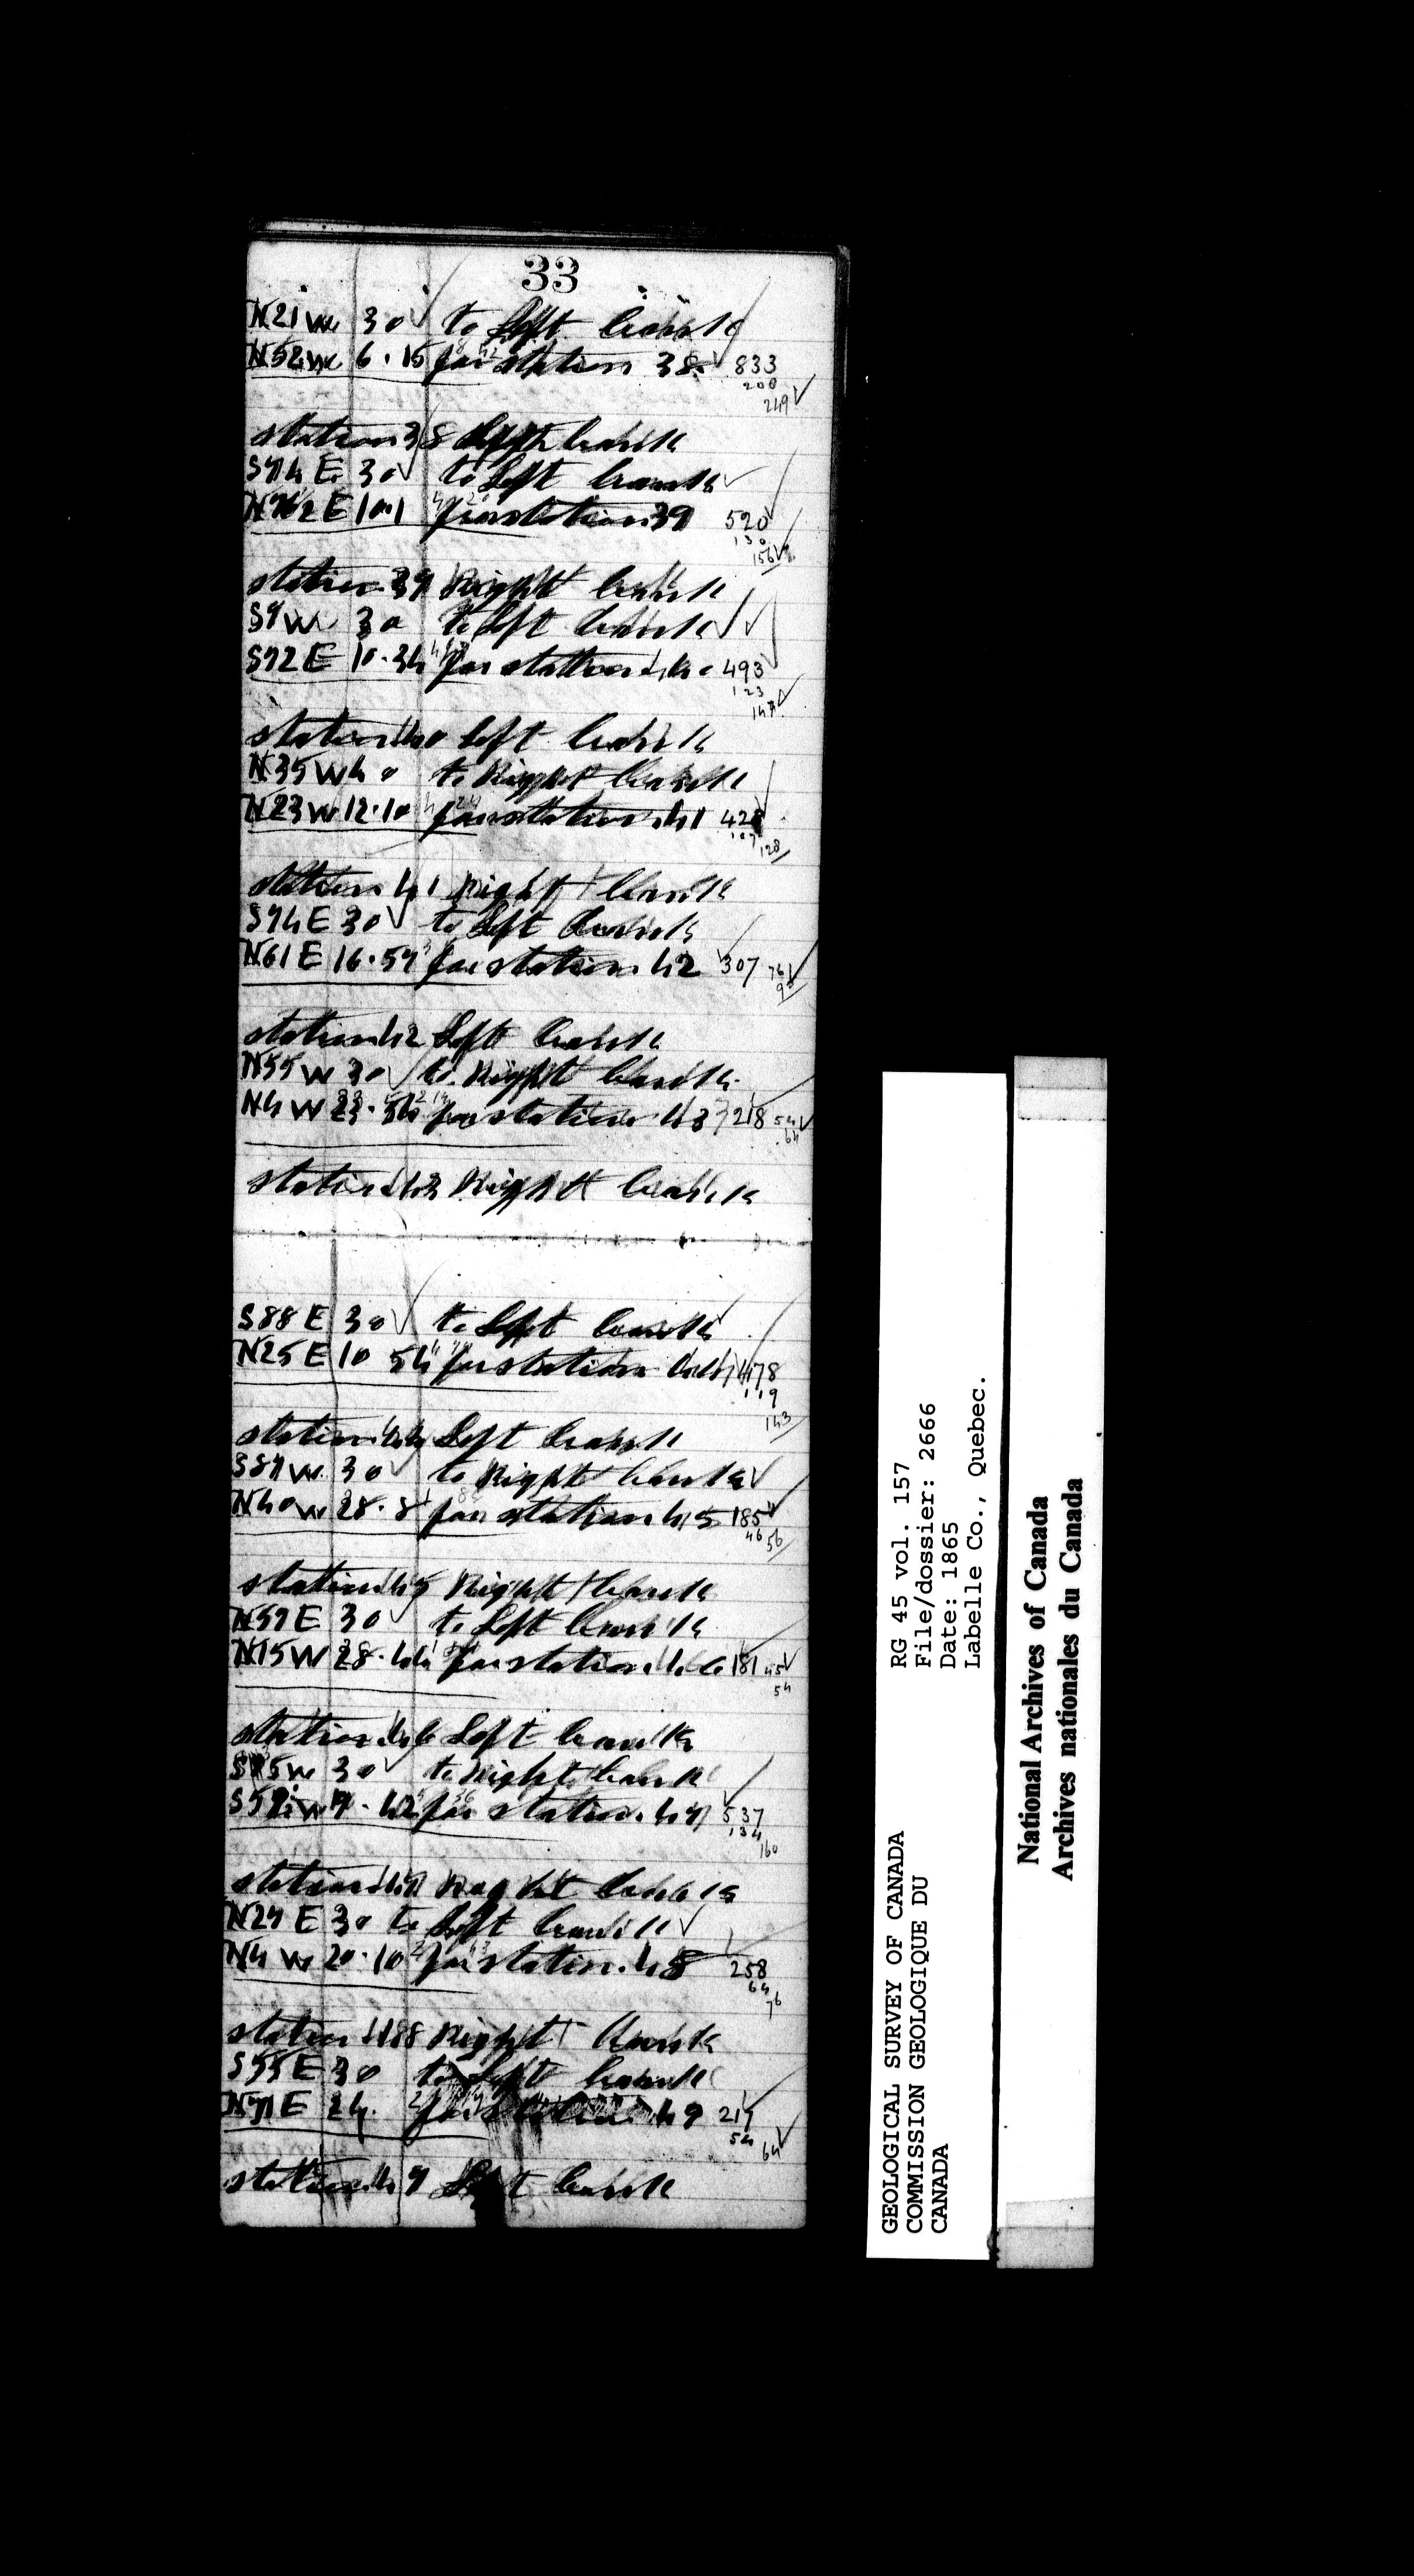 33
N21W 30 to Left bank
N52W 6.15 for station 38 833
208
249
station 38 Left bank
S74E 30 to Left bank
N E 10.1 for station 39 520
130
156
station 39 Right bank
S7W 30 to Left bank
S72E 10.34 for station 40 493
123
147
station 40 Left bank
N35W 40 to Right bank
N23W 12.10 for station 41 428
107
128
station 41 Right bank
S74E 30 to Left bank
N61E 16.57 for station 42 307 76
station 42 Left bank
N55W 30 to Right bank
N4W for station 43 218 54
64
station 43 Right bank
S88E 30 to Left bank
N25E 10 54 for station 44 478
119
143
station 44 Left bank
S87W 30 to Right bank
N40W 28.8 for station 45 185
46 56
station 45 Right bank
N57E 30 to Left bank
N15W 28.44 for station 46 181 45
54
station 46 Left bank
W 30 to Right bank
for station 47 537
134
160
station 47 Right bank
N27E 30 to Left bank
N4W 20.10 for station 48 258
64
76
station 48 Right bank
S55E 30 to Left bank
N71E 24. for station 49 217
54
64
station 49 Left bank
GEOLOGICAL SURVEY OF CANADA
COMMISSION GEOLOGIQUE DU
CANADA
RG 45 vol. 157
File/dossier: 2666
Date: 1865
Labelle Co., Quebec.
National Archives of Canada
Archives nationales du Canada